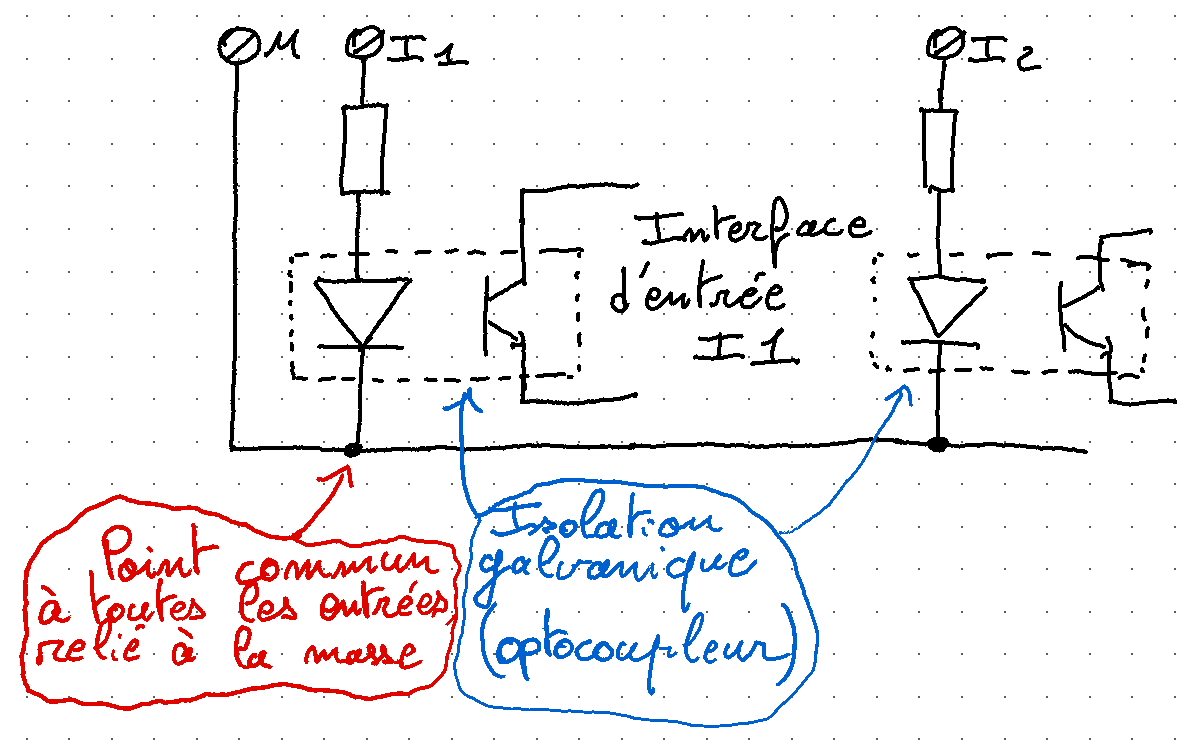 M
I1
I2
Interface
d'entrée
I1
Point commun
à toutes les entrées,
relié à la masse
Isolation
galvanique
(optocoupleur)